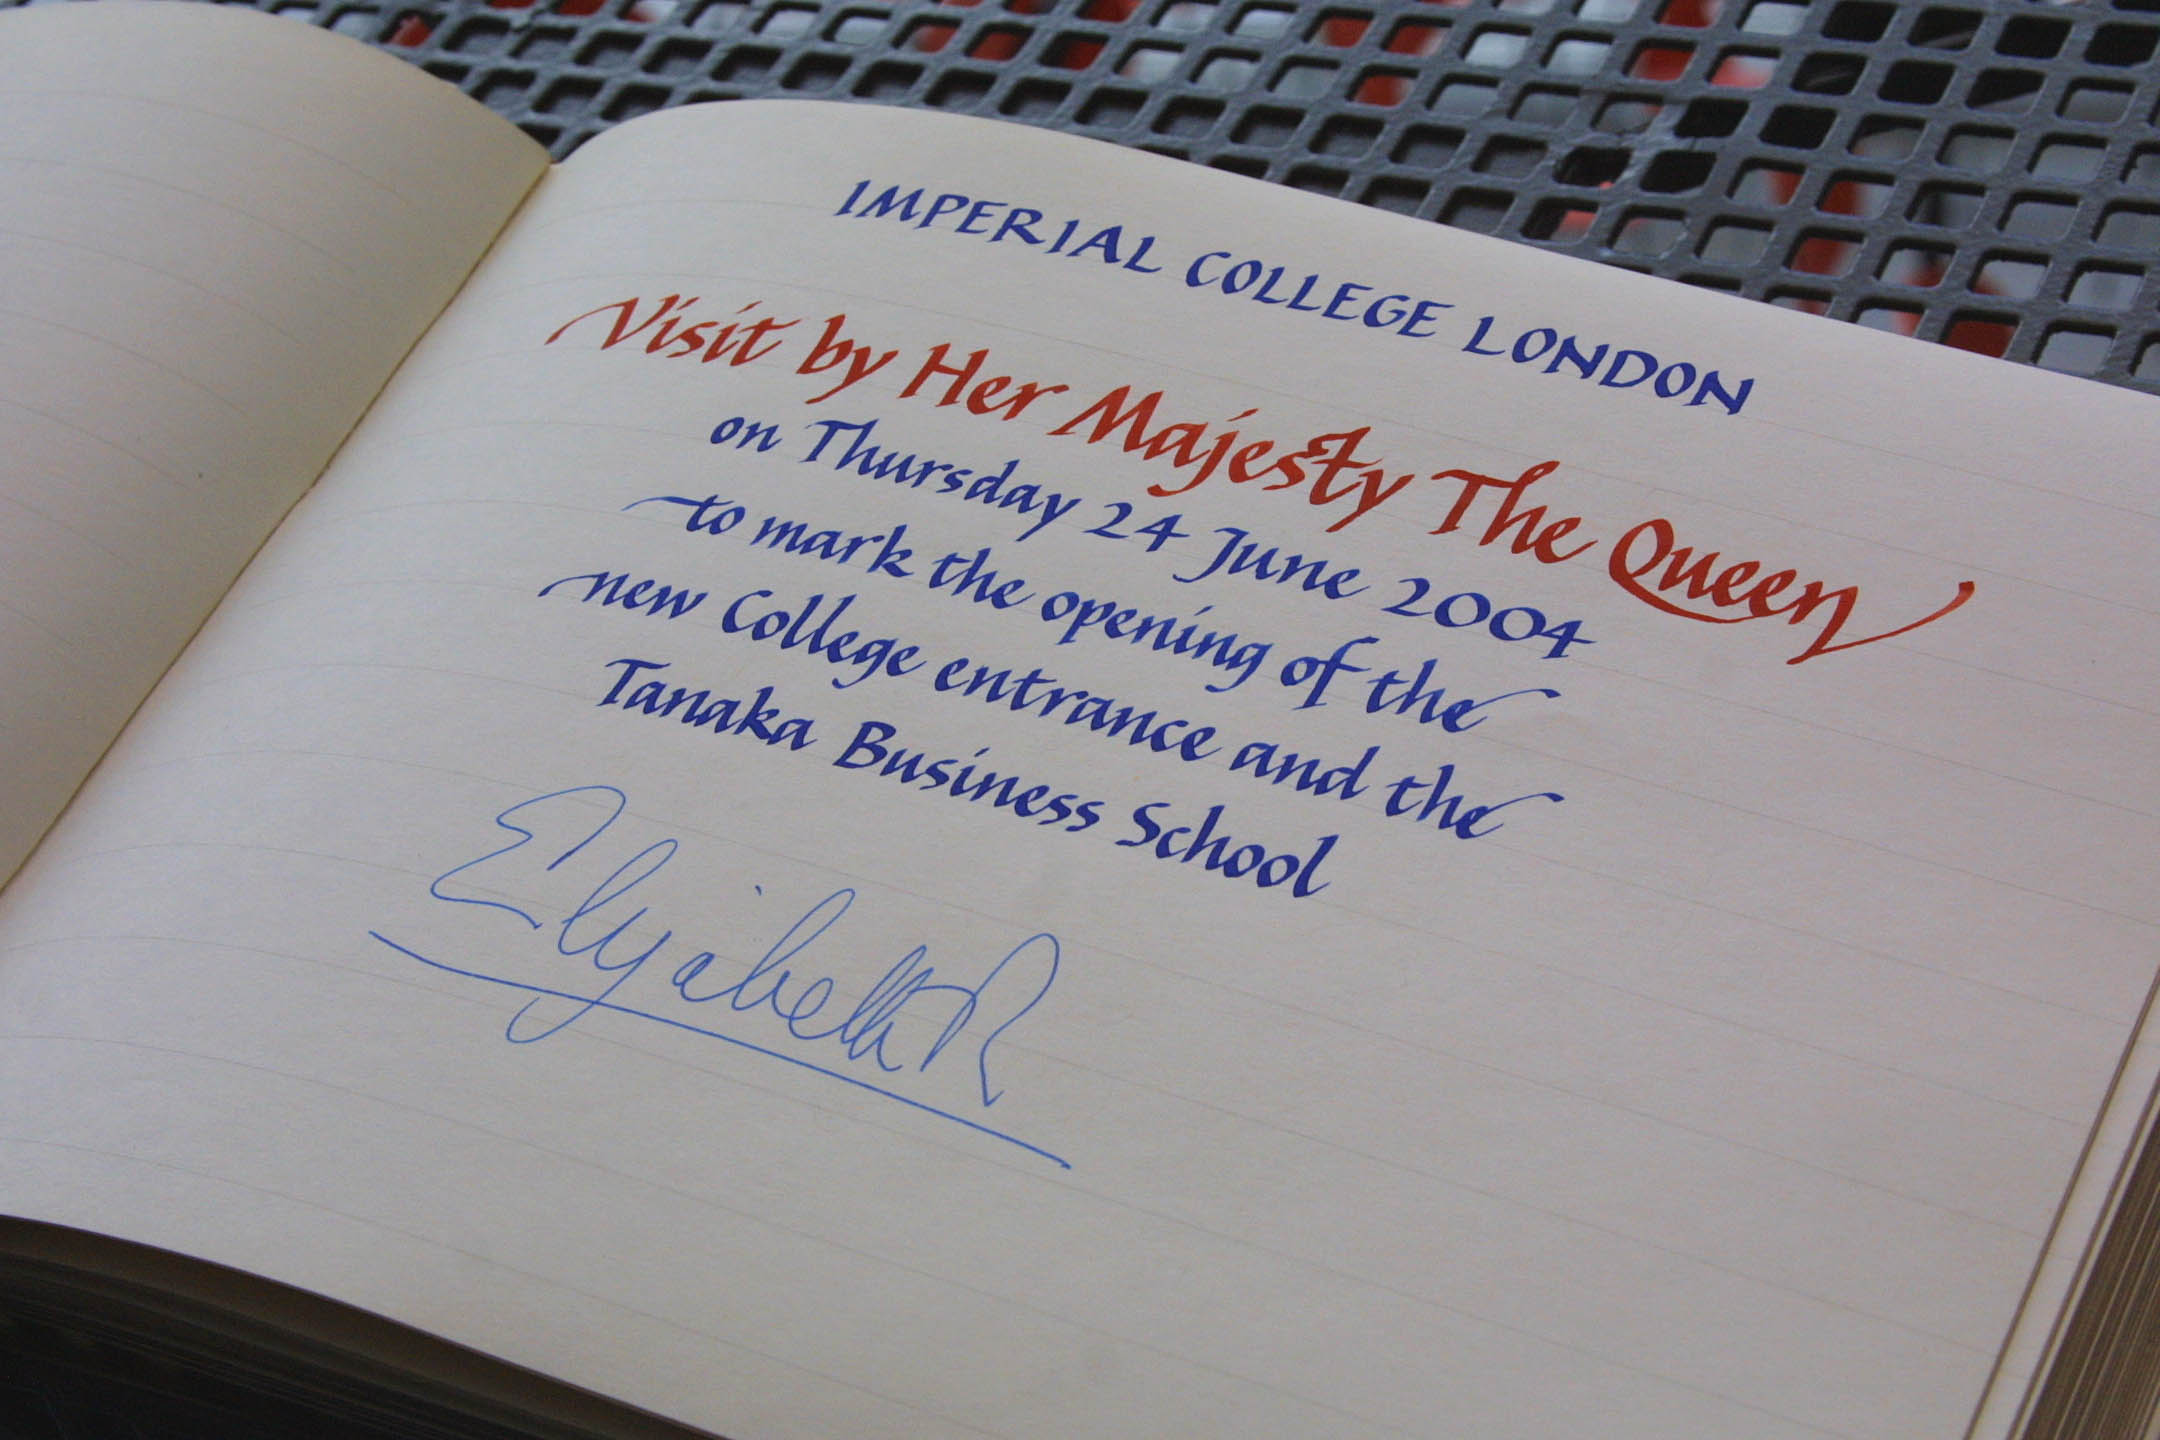 IMPERIAL COLLEGE LONDON
Visit by Her Majesty The Queen
on Thursday 24 June 2004
to mark the opening of the
new College entrance and the
Tanaka Business School
Elizabeth R